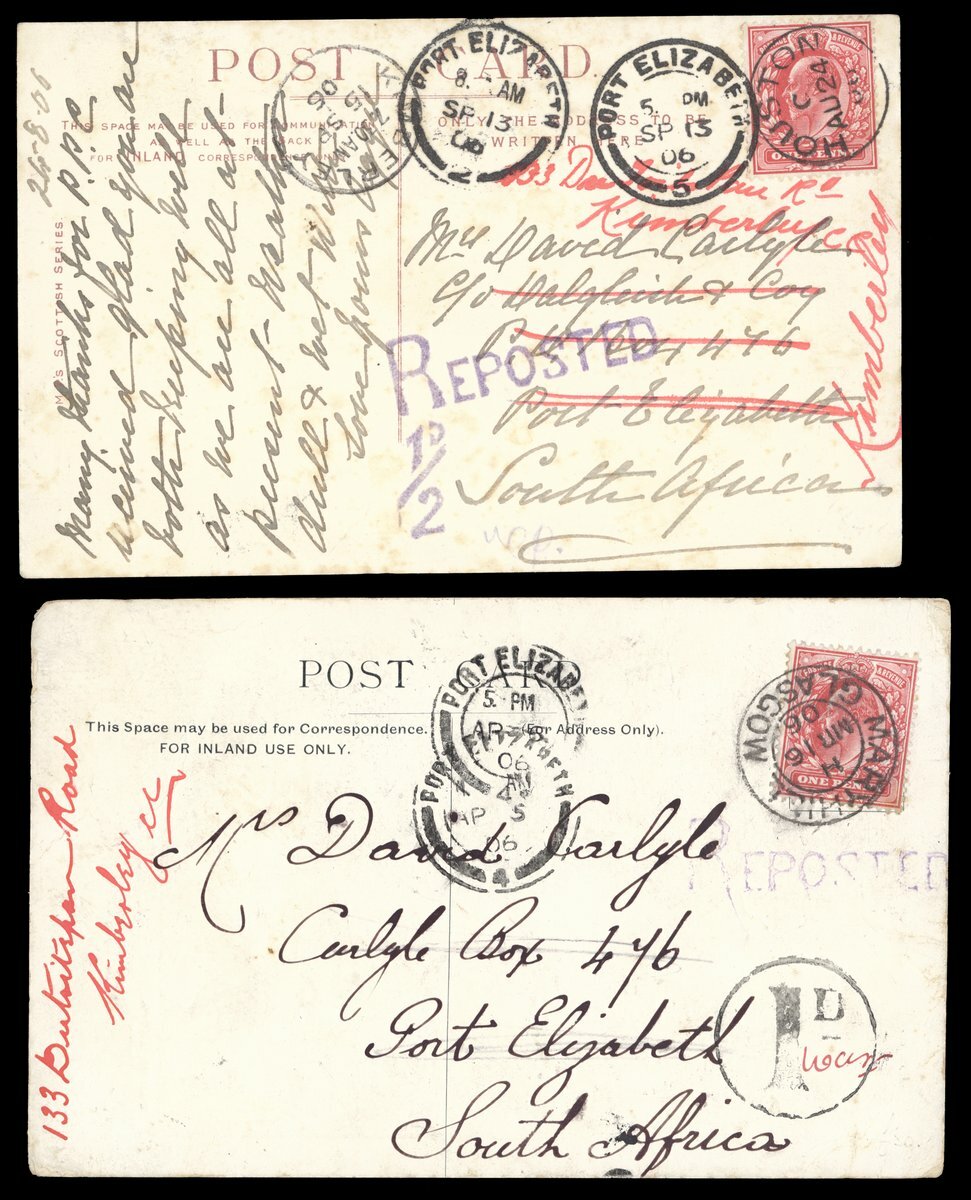 POST CARD
THIS SPACE MAY BE USED FOR COMMUNICATION
AS WELL AS THE BACK
FOR INLAND CORRESPONDENCE ONLY
ONLY THE ADDRESS TO BE
WRITTEN HERE
SCOTTISH SERIES
24-8-06
Many thanks for p.p.c
received glad you are
both keeping well
as we are all at
present. Weather
dull & wet
Love yours
KIMBERLEY
PORT ELIZABETH
8. AM
SP 13
06
2
PORT ELIZABETH
5. PM
SP 13
06
5
HOUSTON
C
AU 24
ONE PENNY
133
Kimberley
Mrs David Carlyle
c/o Dalgleish & Coy
Box 476
Port Elizabeth
South Africa
Kimberley
REPOSTED
1D/2
POST CARD
This Space may be used for Correspondence.
FOR INLAND USE ONLY.
(For Address Only).
PORT ELIZABETH
5. PM
AP
06
PORT ELIZABETH
AP 5
06
4
MARYHILL
GLASGOW
MR 16
06
ONE PENNY
Mrs David Carlyle
Carlyle Box 476
Port Elizabeth
South Africa
133 Dutoitspan Road
Kimberley CC
REPOSTED
1D